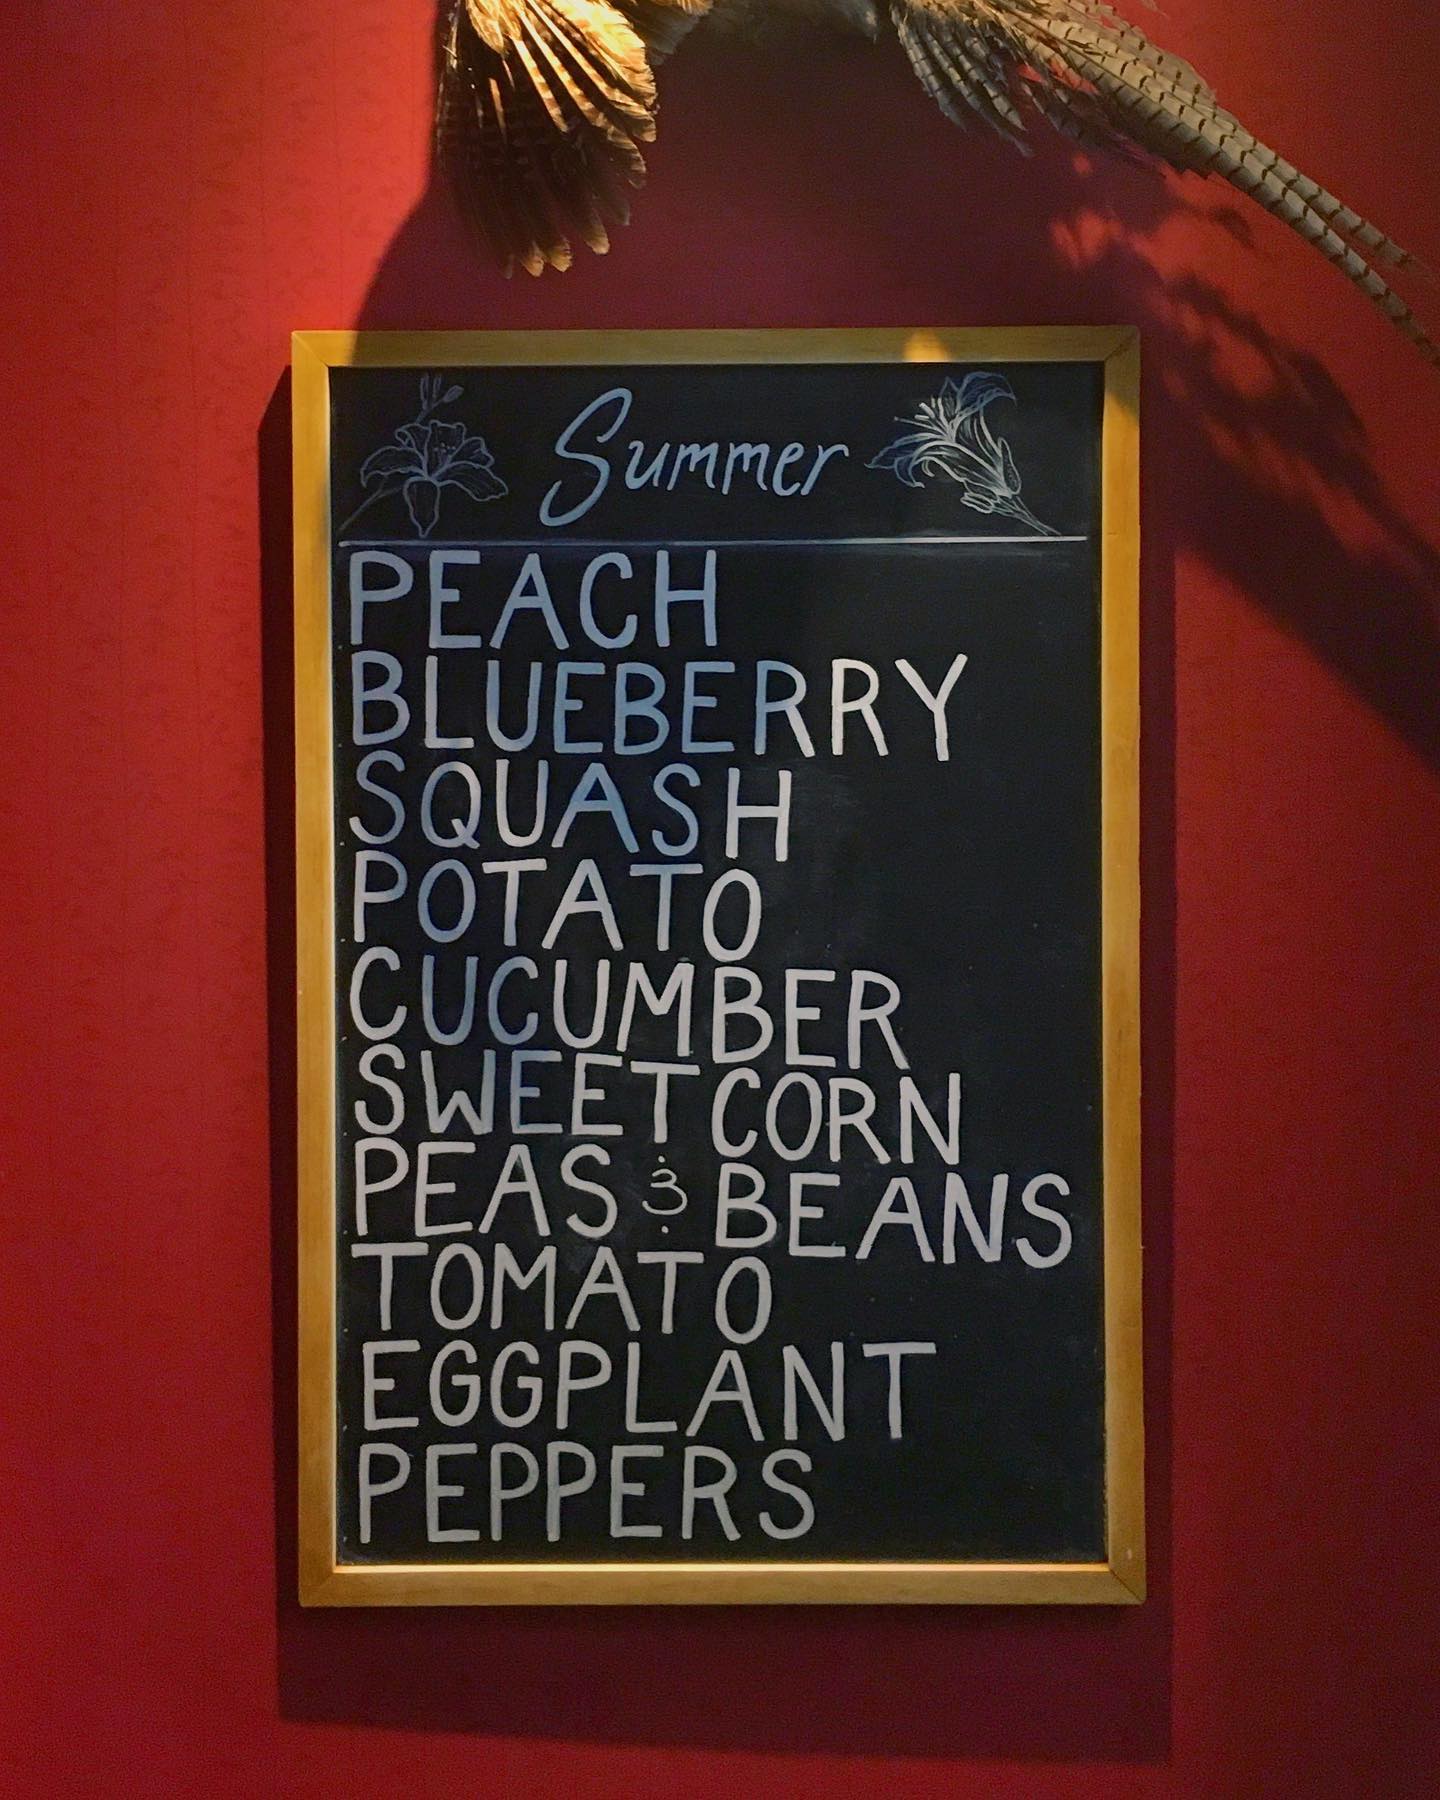 Summer
PEACH
BLUEBERRY
SQUASH
POTATO
CUCUMBER
SWEET CORN
PEAS & BEANS
TOMATO
EGGPLANT
PEPPERS